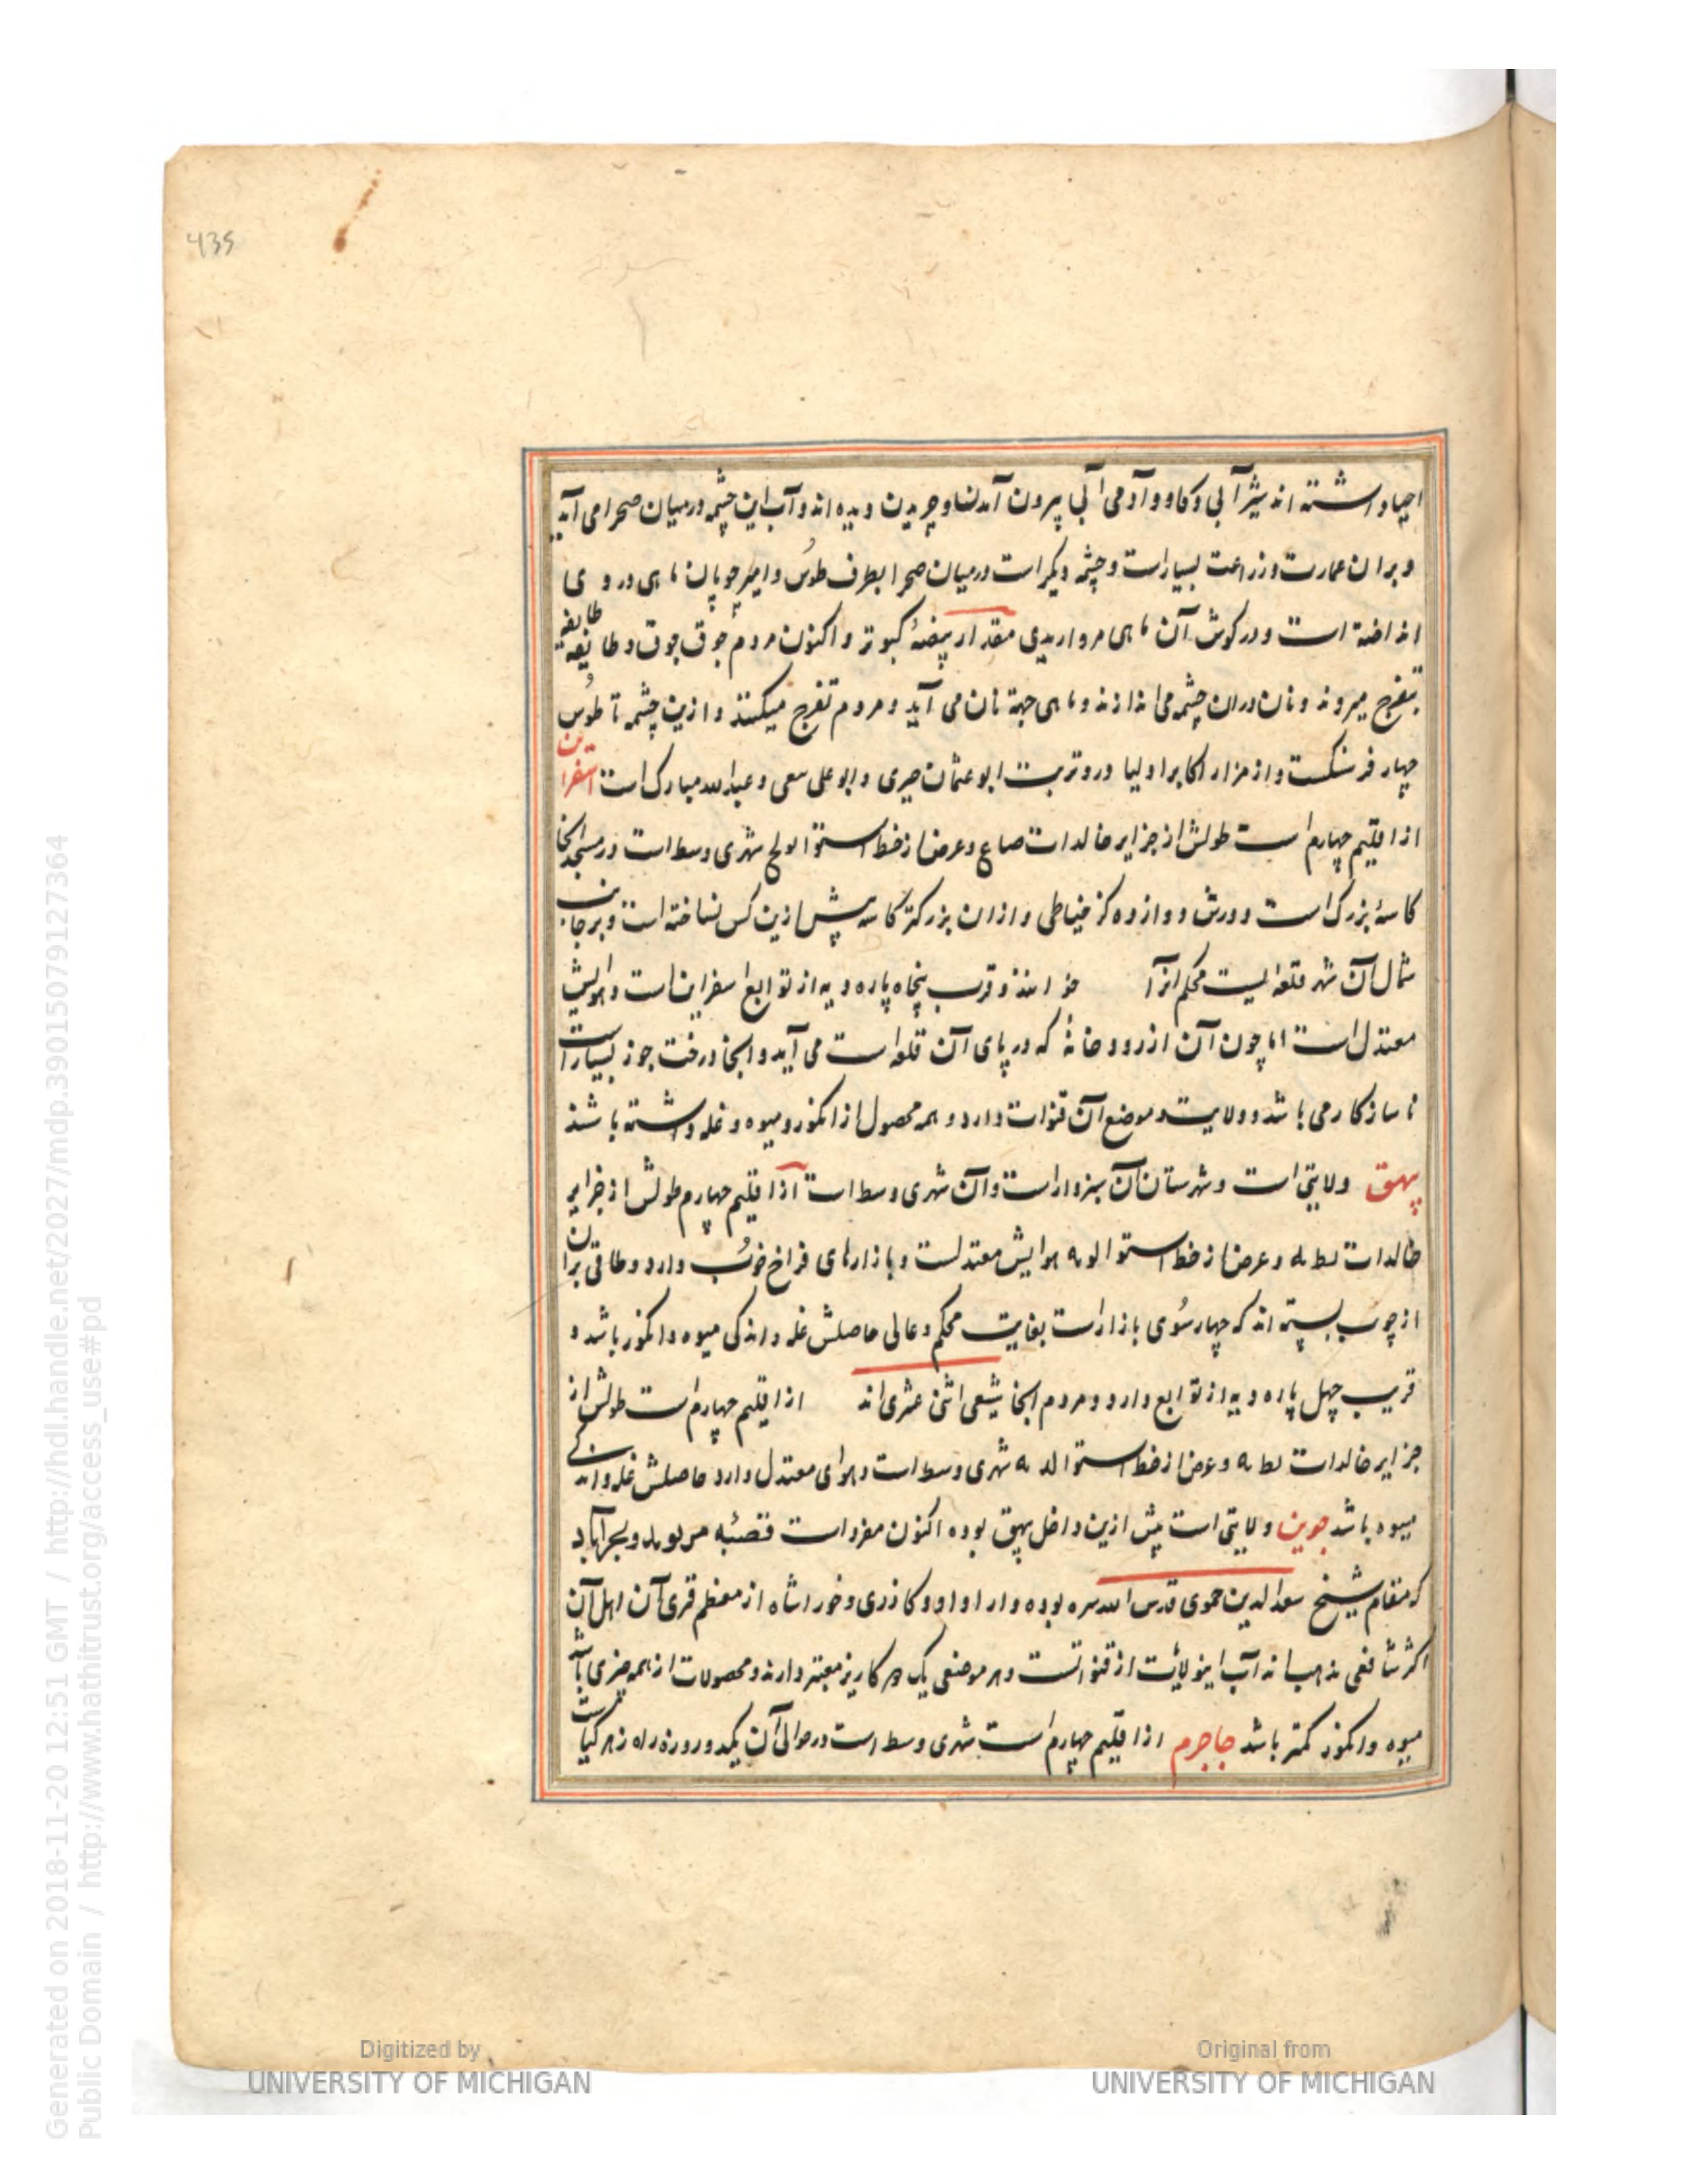 435
احیا داشته اند شیر آبی و کاو و آدمی آبی بیرون آمدن و چریدن دیده اند و آب این چشمه در میان صحرا می آید
و بران عمارت و زراعت بسیار است و چشمه دیکر است در میان صحرا بطرف طوس و امیر چوپان ماهی در وی
انداخته است و در کوش آن ماهی مرواریدی مقدار بیضهٔ کبوتر و اکنون مردم جوق جوق و طایفه طایفه
بتفرج میروند و نان دران چشمه می اندازند و ماهی جهة نان می آید و مردم تفرج میکنند و ازین چشمه تا طوس
چهار فرسنکست و از مزار اکابر اولیا درو تربت ابو عثمان حیری و ابو علی و عبدالله مبارک است اسفراین
از اقلیم چهارم است طولش از جزایر خالدات صاع و عرض از خط استوا لولح شهری وسط است در مسجد آنجا
کاسهٔ بزرک است دورش دوازده کز خیاطی و ازان بزرکتر کاسه پیش ازین کس نساخته است و بر جانب
شمال آن شهر قلعه ایست محکم آنرا خوانند و قرب پنجاه پاره دیه از توابع اسفراین است و هوایش
معتدل است اما چون آن از رودخانهٔ که در پای آن قلعه است می آید و آنجا درخت جوز بسیار است
ناسازکار می باشد و ولایت و موضع آن قنوات دارد و همه محصول از انکور و میوه و غله داشته باشند
بیهق ولایتی است و شهرستان آن سبزوار است و آن شهری وسط است از اقلیم چهارم طولش از جزایر
خالدات لط به و عرض از خط استوا لو به هوایش معتدلست و بازارهای فراخ خوب دارد و طاقی بران
از چوب بسته اند که چهار سوی بازار است بغایت محکم و عالی حاصلش غله و اندکی میوه و انکور باشد و
قریب چهل پاره دیه از توابع دارد و مردم آنجا شیعی اثنی عشری اند از اقلیم چهارم است طولش از
جزایر خالدات لط به و عرض از خط استوا لد به شهری وسط است و هوای معتدل دارد حاصلش غله و اندکی
میوه باشد جوین ولایتی است پیش ازین داخل بیهق بوده اکنون مفرد است قصبه و بحرآباد
که مقام شیخ سعدالدین حموی قدس الله سره بوده و ازادوار و کاذری و خوراشاه از معظم قری آن اهل آن
اکثر شافعی مذهب اند آب اینولایت از قنواتست و هر موضعی یک دو کاریز معتبر دارند و محصولات از همه چیزی باشد
میوه و انکور کمتر باشد جاجرم از اقلیم چهارم است شهری وسط است در حوالی آن یکدو روزه راه زهر کیاست
Digitized by
UNIVERSITY OF MICHIGAN
Original from
UNIVERSITY OF MICHIGAN
Generated on 2018-11-20 12:51 GMT / http://hdl.handle.net/2027/mdp.39015079127364
Public Domain / http://www.hathitrust.org/access_use#pd